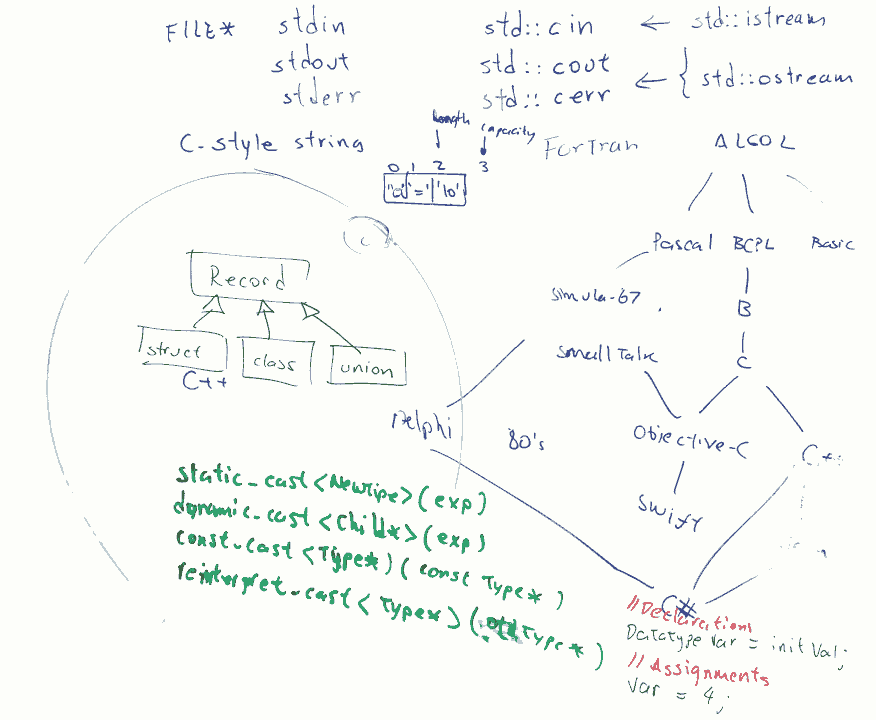 FILE* stdin std::cin ← std::istream
stdout std::cout
stderr std::cerr ← { std::ostream
C-style string
length capacity
0 1 2 3
'\0'
ForTran
ALGOL
Pascal BCPL Basic
Simula-67
B
SmallTalk
C
Record
struct class union
C++
Delphi
80's
Objective-C
C++
Swift
C#
static_cast<NewTipe>(exp)
dynamic_cast<Child*>(exp)
const_cast<Type*)(const Type*)
reinterpret_cast<Type*)(old Type*)
//Declarations
DataType Var = initVal;
//Assignments
Var = 4;